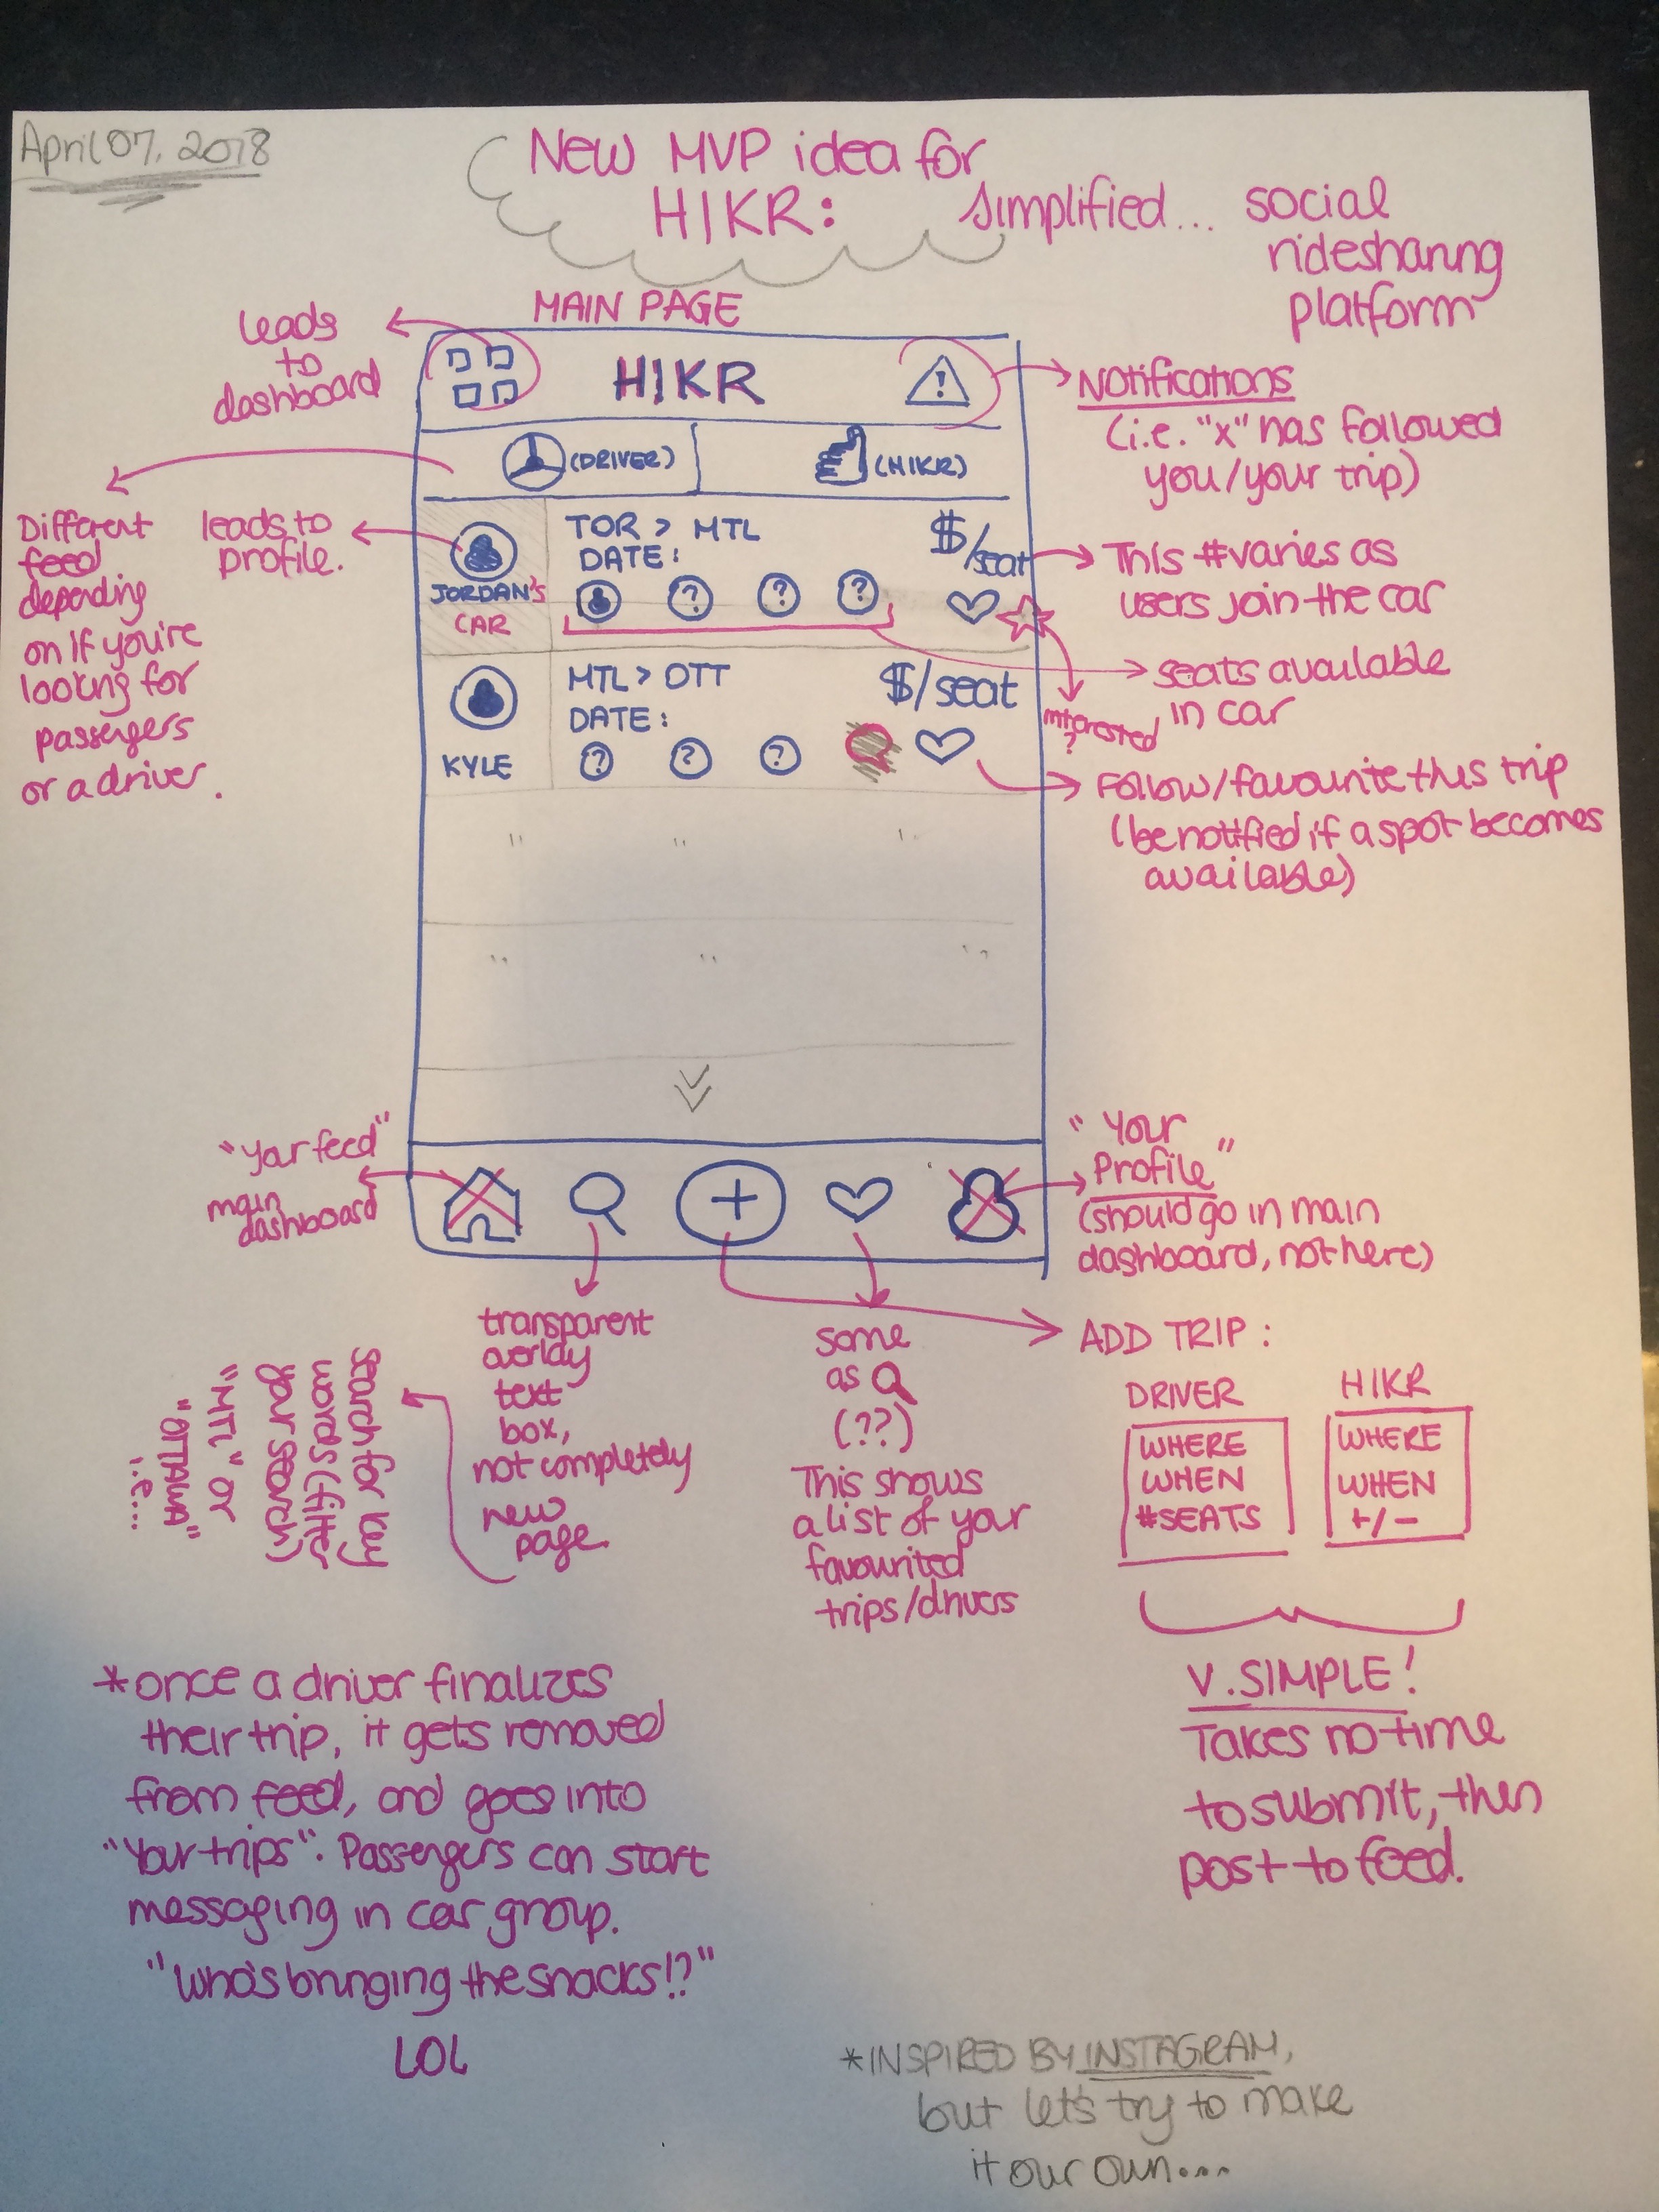 April 07, 2018
New MVP idea for
HIKR:
simplified... social
ridesharing
platform
MAIN PAGE
leads
to
dashboard
HIKR
!
Notifications
(i.e. "x" has followed
you/your trip)
(DRIVER)
(HIKR)
Different
feed
depending
on if you're
looking for
passengers
or a driver.
leads to
profile.
JORDAN'S
CAR
TOR > MTL
DATE:
? ? ?
$/seat
This # varies as
users join the car
seats available
in car
interested
?
KYLE
MTL > OTT
DATE:
? ? ?
$/seat
Follow/favourite this trip
(be notified if a spot becomes
available)
" " "
" " "
"your feed"
main
dashboard
+
"Your
Profile"
(should go in main
dashboard, not here)
transparent
overlay
text
box,
not completely
new
page.
search for key
words (filter
your search)
"MTL" or
"OTTAWA"
i.e...
same
as
(??)
This shows
a list of your
favourited
trips/drivers
ADD TRIP:
DRIVER
WHERE
WHEN
#SEATS
HIKR
WHERE
WHEN
+/-
V. SIMPLE!
Takes no time
to submit, then
post to feed.
*once a driver finalizes
their trip, it gets removed
from feed, and goes into
"Your trips". Passengers can start
messaging in car group.
"Who's bringing the snacks!?"
LOL
*INSPIRED BY INSTAGRAM,
but let's try to make
it our own...